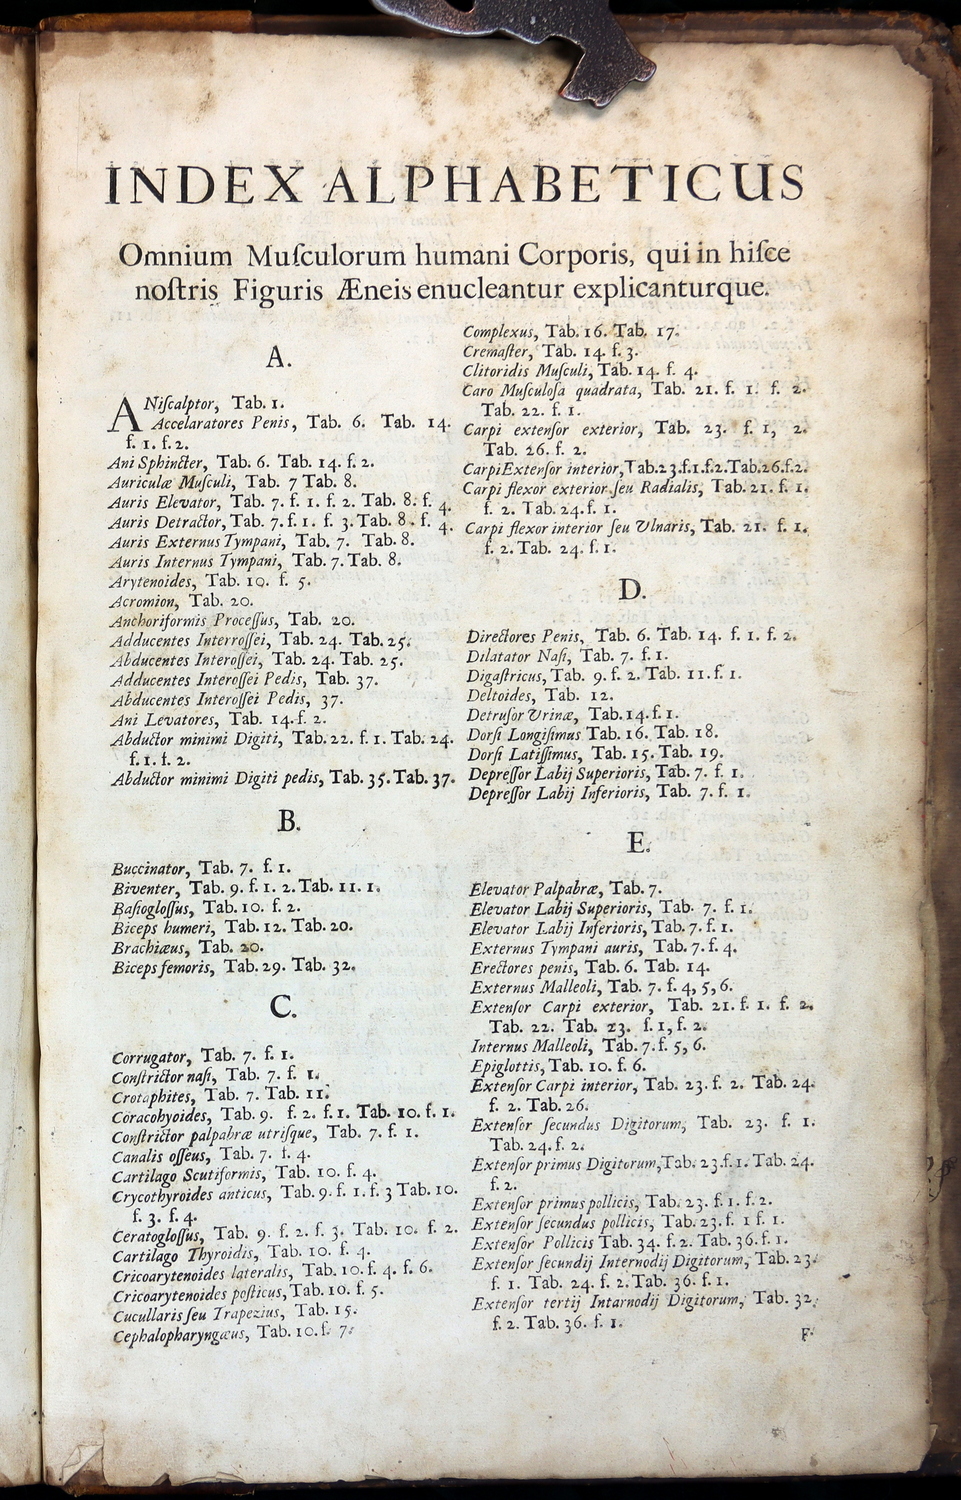 INDEX ALPHABETICUS
Omnium Muſculorum humani Corporis, qui in hiſce
noſtris Figuris Æneis enucleantur explicanturque.
A.
ANiſcalptor, Tab. 1.
Accelaratores Penis, Tab. 6. Tab. 14.
f. 1. f. 2.
Ani Sphincter, Tab. 6. Tab. 14. f. 2.
Auriculæ Muſculi, Tab. 7 Tab. 8.
Auris Elevator, Tab. 7. f. 1. f. 2. Tab. 8. f. 4.
Auris Detractor, Tab. 7. f. 1. f. 3. Tab. 8. f. 4.
Auris Externus Tympani, Tab. 7. Tab. 8.
Auris Internus Tympani, Tab. 7. Tab. 8.
Arytenoides, Tab. 10. f. 5.
Acromion, Tab. 20.
Anchoriformis Proceſſus, Tab. 20.
Adducentes Interroſſei, Tab. 24. Tab. 25.
Abducentes Interoſſei, Tab. 24. Tab. 25.
Adducentes Interoſſei Pedis, Tab. 37.
Abducentes Interoſſei Pedis, 37.
Ani Levatores, Tab. 14. f. 2.
Abductor minimi Digiti, Tab. 22. f. 1. Tab. 24.
f. 1. f. 2.
Abductor minimi Digiti pedis, Tab. 35. Tab. 37.
B.
Buccinator, Tab. 7. f. 1.
Biventer, Tab. 9. f. 1. 2. Tab. 11. 1.
Baſiogloſſus, Tab. 10. f. 2.
Biceps humeri, Tab. 12. Tab. 20.
Brachiæus, Tab. 20.
Biceps femoris, Tab. 29. Tab. 32.
C.
Corrugator, Tab. 7. f. 1.
Conſtrictor naſi, Tab. 7. f. 1.
Crotaphites, Tab. 7. Tab. 11.
Coracohyoides, Tab. 9. f. 2. f. 1. Tab. 10. f. 1.
Conſtrictor palpabræ utriſque, Tab. 7. f. 1.
Canalis oſſeus, Tab. 7. f. 4.
Cartilago Scutiformis, Tab. 10. f. 4.
Crycothyroides anticus, Tab. 9. f. 1. f. 3 Tab. 10.
f. 3. f. 4.
Ceratogloſſus, Tab. 9. f. 2. f. 3. Tab. 10. f. 2.
Cartilago Thyroidis, Tab. 10. f. 4.
Cricoarytenoides lateralis, Tab. 10. f. 4. f. 6.
Cricoarytenoides poſticus, Tab. 10. f. 5.
Cucullaris ſeu Trapezius, Tab. 15.
Cephalopharyngæus, Tab. 10. f. 7.
Complexus, Tab. 16. Tab. 17.
Cremaſter, Tab. 14. f. 3.
Clitoridis Muſculi, Tab. 14. f. 4.
Caro Muſculoſa quadrata, Tab. 21. f. 1. f. 2.
Tab. 22. f. 1.
Carpi extenſor exterior, Tab. 23. f. 1, 2.
Tab. 26. f. 2.
Carpi Extenſor interior, Tab. 23. f. 1. f. 2. Tab. 26. f. 2.
Carpi flexor exterior ſeu Radialis, Tab. 21. f. 1.
f. 2. Tab. 24. f. 1.
Carpi flexor interior ſeu Vlnaris, Tab. 21. f. 1.
f. 2. Tab. 24. f. 1.
D.
Directores Penis, Tab. 6. Tab. 14. f. 1. f. 2.
Dilatator Naſi, Tab. 7. f. 1.
Digaſtricus, Tab. 9. f. 2. Tab. 11. f. 1.
Deltoides, Tab. 12.
Detruſor Vrinæ, Tab. 14. f. 1.
Dorſi Longiſimus Tab. 16. Tab. 18.
Dorſi Latiſſimus, Tab. 15. Tab. 19.
Depreſſor Labij Superioris, Tab. 7. f. 1.
Depreſſor Labij Inferioris, Tab. 7. f. 1.
E.
Elevator Palpabræ, Tab. 7.
Elevator Labij Superioris, Tab. 7. f. 1.
Elevator Labij Inferioris, Tab. 7. f. 1.
Externus Tympani auris, Tab. 7. f. 4.
Erectores penis, Tab. 6. Tab. 14.
Externus Malleoli, Tab. 7. f. 4, 5, 6.
Extenſor Carpi exterior, Tab. 21. f. 1. f. 2.
Tab. 22. Tab. 23. f. 1, f. 2.
Internus Malleoli, Tab. 7. f. 5, 6.
Epiglottis, Tab. 10. f. 6.
Extenſor Carpi interior, Tab. 23. f. 2. Tab. 24.
f. 2. Tab. 26.
Extenſor ſecundus Digitorum, Tab. 23. f. 1.
Tab. 24. f. 2.
Extenſor primus Digitorum, Tab. 23. f. 1. Tab. 24.
f. 2.
Extenſor primus pollicis, Tab. 23. f. 1. f. 2.
Extenſor ſecundus pollicis, Tab. 23. f. 1 f. 1.
Extenſor Pollicis Tab. 34. f. 2. Tab. 36. f. 1.
Extenſor ſecundij Internodij Digitorum, Tab. 23.
f. 1. Tab. 24. f. 2. Tab. 36. f. 1.
Extenſor tertij Intarnodij Digitorum, Tab. 32.
f. 2. Tab. 36. f. 1.
F.